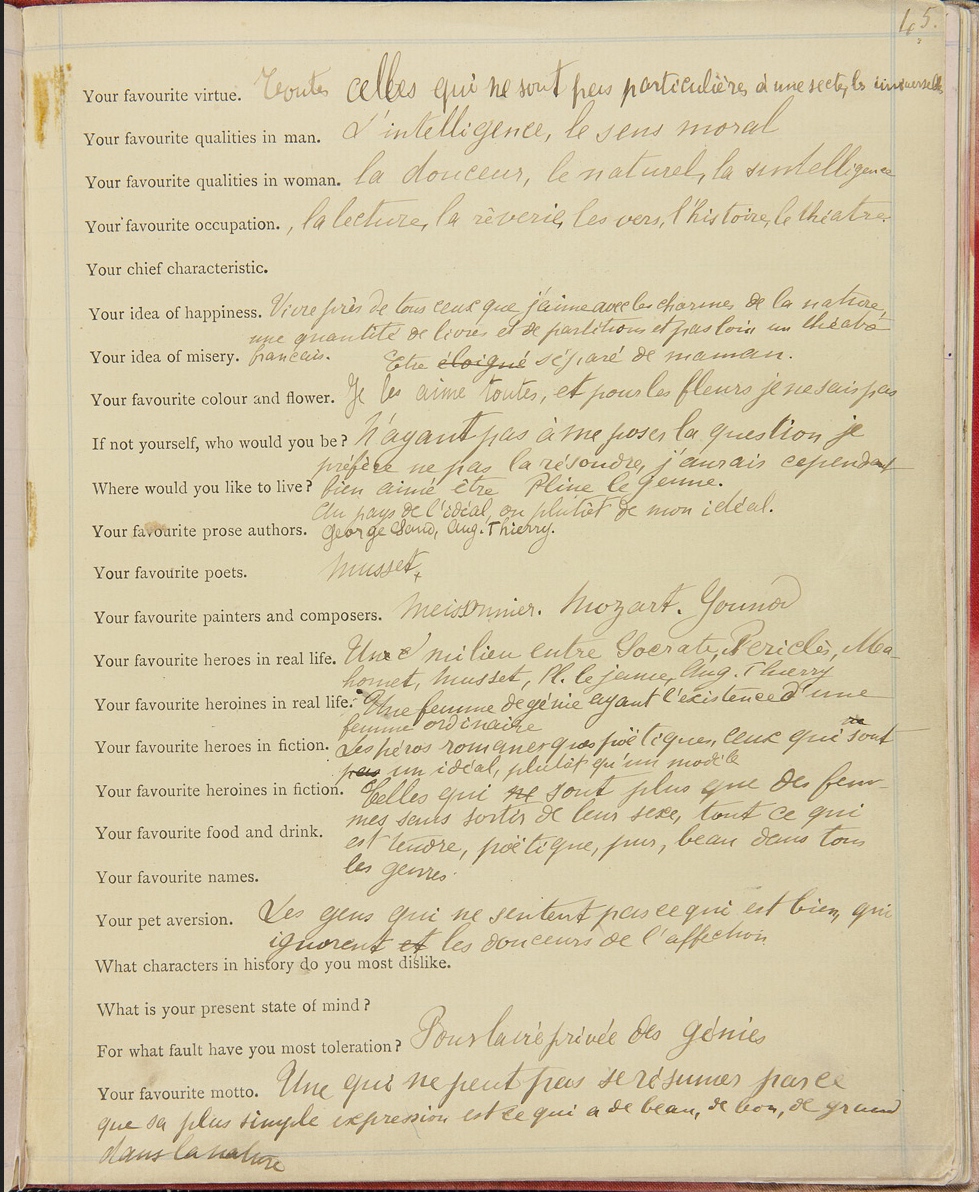 45.
Your favourite virtue. Toutes celles qui ne sont pas particulières à une secte, les universelles
Your favourite qualities in man. L'intelligence, le sens moral
Your favourite qualities in woman. la douceur, le naturel, la intelligence
Your favourite occupation. , la lecture, la rêverie, les vers, l'histoire, le théatre
Your chief characteristic.
Your idea of happiness. Vivre près de tous ceux que j'aime avec les charmes de la nature,
une quantité de livres et de partitions et pas loin un théatre
Your idea of misery. français. Etre éloigné séparé de maman.
Your favourite colour and flower. Je les aime toutes, et pour les fleurs je ne sais pas
If not yourself, who would you be? N'ayant pas à me poser la question je
préfère ne pas la résoudre, j'aurais cependant
Where would you like to live? bien aimé être Pline le jeune.
Au pays de l'idéal, ou plutôt de mon idéal.
Your favourite prose authors. George Sand, Aug. Thierry.
Your favourite poets. Musset,
Your favourite painters and composers. Meissonnier. Mozart. Gounod
Your favourite heroes in real life. Un milieu entre Socrate, Periclès, Ma-
homet, Musset, Pl. le jeune, Aug. Thierry
Your favourite heroines in real life. Une femme de génie ayant l'existence d'une
femme ordinaire
Your favourite heroes in fiction. Les héros romanesques poëtiques, ceux qui sont
pas un idéal, plutôt qu'un modèle
Your favourite heroines in fiction. Celles qui ne sont plus que des fem-
mes sans sortir de leur sexe, tout ce qui
Your favourite food and drink. est tendre, poëtique, pur, beau dans tous
Your favourite names. les genres
Your pet aversion. Les gens qui ne sentent pas ce qui est bien, qui
ignorent et les douceurs de l'affection
What characters in history do you most dislike.
What is your present state of mind?
For what fault have you most toleration? Pour la vie privée des génies
Your favourite motto. Une qui ne peut pas se résumer parce
que sa plus simple expression est ce qui a de beau, de bon, de grand
dans la nature